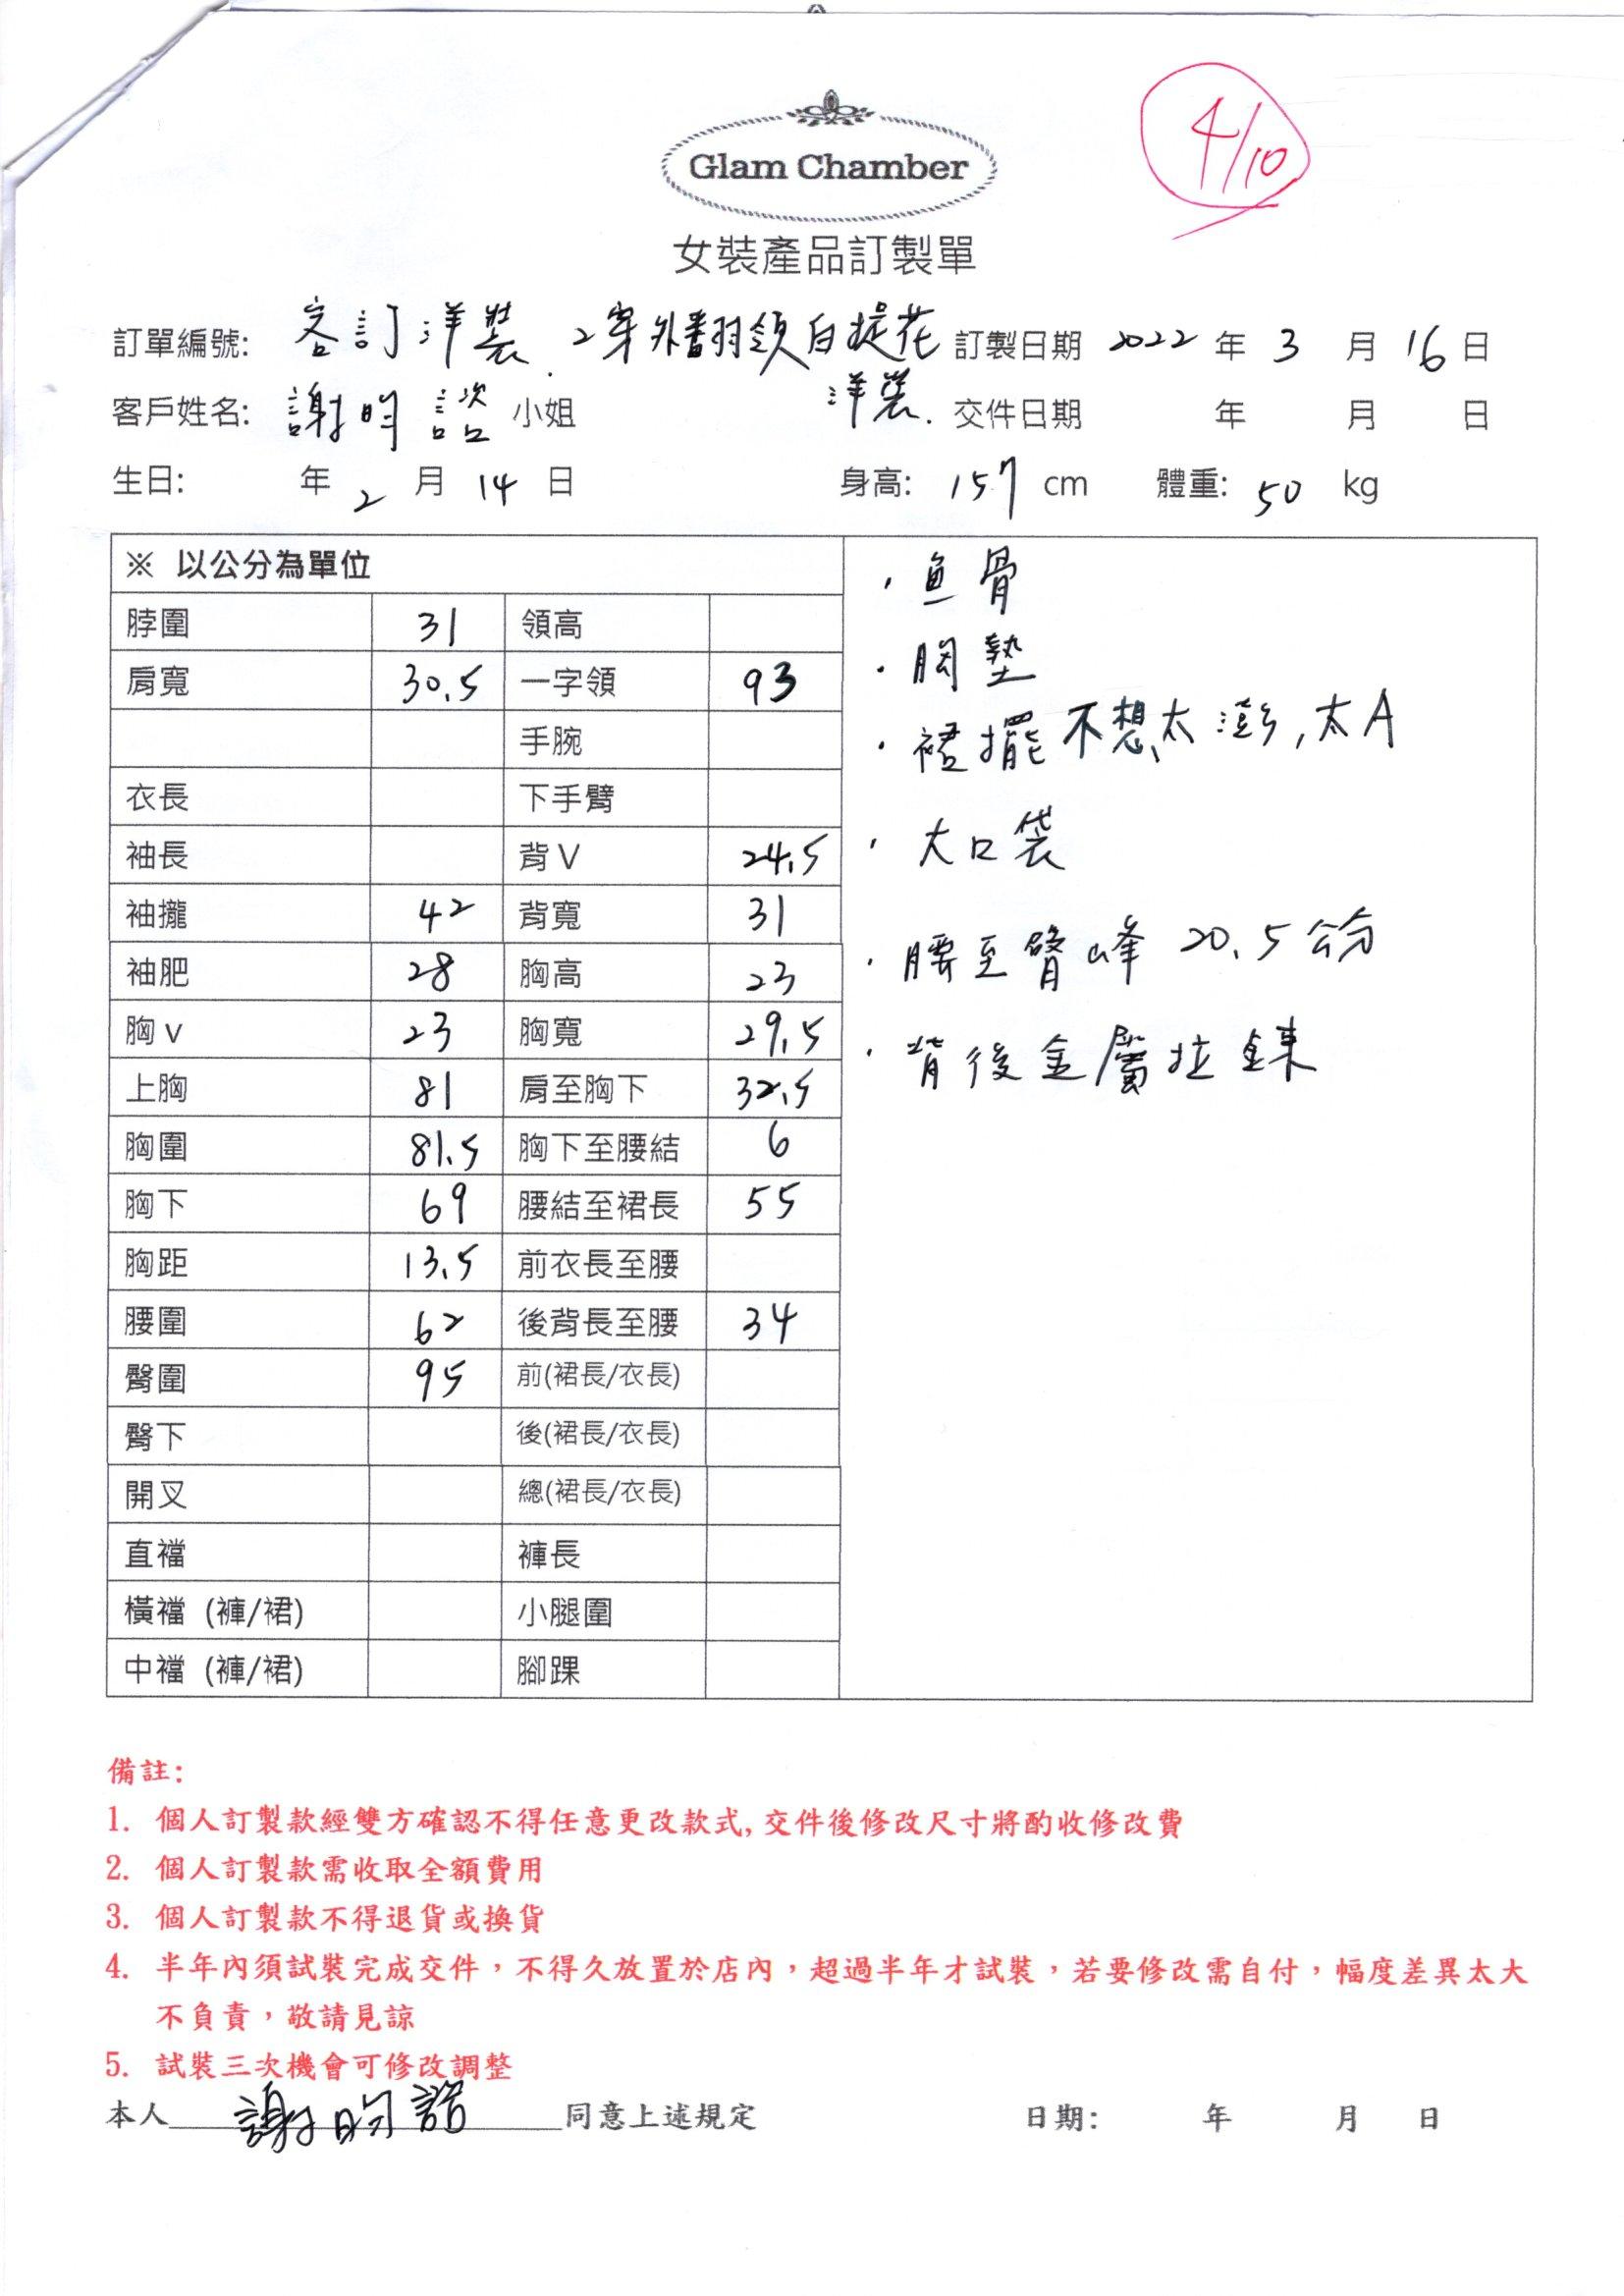 4/10
Glam Chamber
女裝產品訂製單
訂單編號: 客訂洋裝. 2穿外翻領白提花 訂製日期 2022 年 3 月 16 日
洋裝.
客戶姓名: 謝昀諮 小姐 交件日期 年 月 日
生日: 年 2 月 14 日 身高: 157 cm 體重: 50 kg
※ 以公分為單位
脖圍 31 領高
肩寬 30.5 一字領 93
手腕
衣長 下手臂
袖長 背V 24.5
袖攏 42 背寬 31
袖肥 28 胸高 23
胸v 23 胸寬 29.5
上胸 81 肩至胸下 32.5
胸圍 81.5 胸下至腰結 6
胸下 69 腰結至裙長 55
胸距 13.5 前衣長至腰
腰圍 62 後背長至腰 34
臀圍 95 前(裙長/衣長)
臀下 後(裙長/衣長)
開叉 總(裙長/衣長)
直襠 褲長
橫襠 (褲/裙) 小腿圍
中襠 (褲/裙) 腳踝
·魚骨
·胸墊
·裙擺不想太澎,太A
·大口袋
·腰至臀峰 20.5公分
·背後金屬拉鍊
備註:
1. 個人訂製款經雙方確認不得任意更改款式,交件後修改尺寸將酌收修改費
2. 個人訂製款需收取全額費用
3. 個人訂製款不得退貨或換貨
4. 半年內須試裝完成交件，不得久放置於店內，超過半年才試裝，若要修改需自付，幅度差異太大
不負責，敬請見諒
5. 試裝三次機會可修改調整
本人 謝昀諮 同意上述規定 日期: 年 月 日